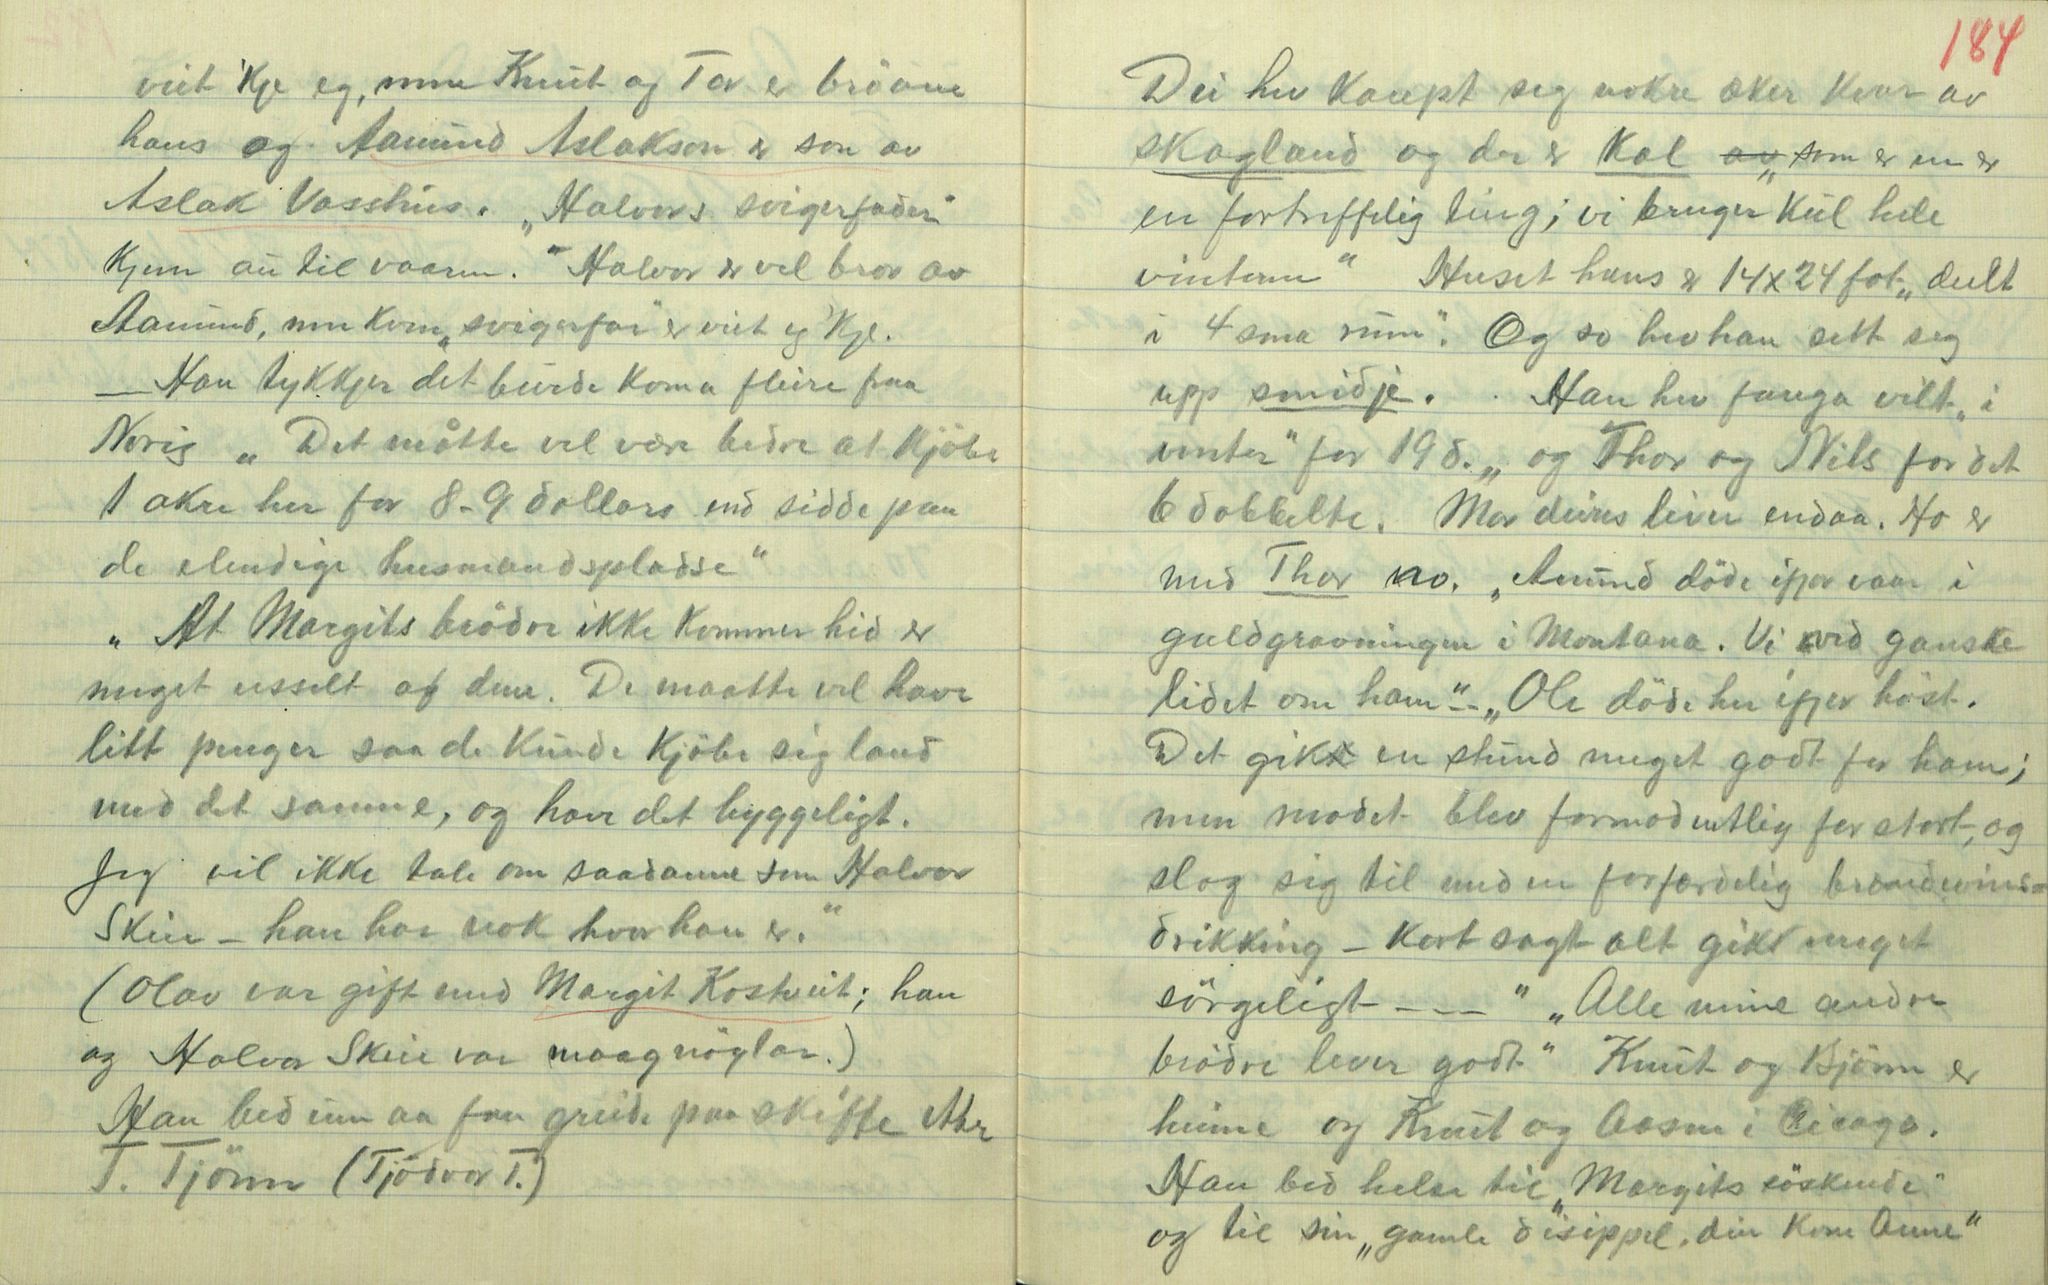 veit 'kje eg, men Knut og Tor er brörne
hans og Aamund Aslakson er son av
Aslak Vasshus. „Halvors svigerfader"
kjem au til vaaren." Halvor er vel bror av
Aamund, men kven „svigerfar" er veit eg 'kje.
— Han tykkjer det burde koma fleire fraa
Norig „Det måtte vel være bedre at kjöbe
1 akre her for 8-9 dollars end sidde paa
de elendige husmandspladse"
„At Margits brödre ikke kommer hid er
meget usselt af dem. De maatte vel have
litt penger saa de kunde kjöbe sig land
med det samme, og have det hyggeligt.
Jeg vil ikke tale om saadanne som Halvor
Skeie – han har nok hvor han er."
(Olav var gift med Margit Kostveit; han
og Halvor Skeie var maagnöglar.)
Han bed um aa faa greide paa skifte
T. Tjönn (Tjödvor T.)
184
Dei hev kaupt seg nokre æker kvar av
skogland og der er Kol av „som er en er
en fortreffelig ting; vi bruger kul hele
vinteren" Huset hans er 14x24 fot „deelt
i 4 sma rum". Og so hev han sett seg
upp smidje. Han hev fanga vilt „i
vinter" for 19 d. „og Thor og Nils for det
6 dobbelte. Mor deires liver endaa. Ho er
med Thor no. „Amund döde ifjor vaar i
guldgravningen i Montana. Vi ved ganske
lidet om ham" – „Ole döde her ifjor höst.
Det gik en stund meget godt for ham;
men modet blev formodentlig for stort, og
slog sig til med en forfærdelig brændevins-
drikking – kort sagt alt gikk meget
sörgeligt – – – " „Alle mine andre
brödre lever godt" Knut og Björnn er
heime og Knut og Aasne i Cicago.
Han bed helse til „Margits söskende"
og til sin „gamle disippel, din kone Anne"